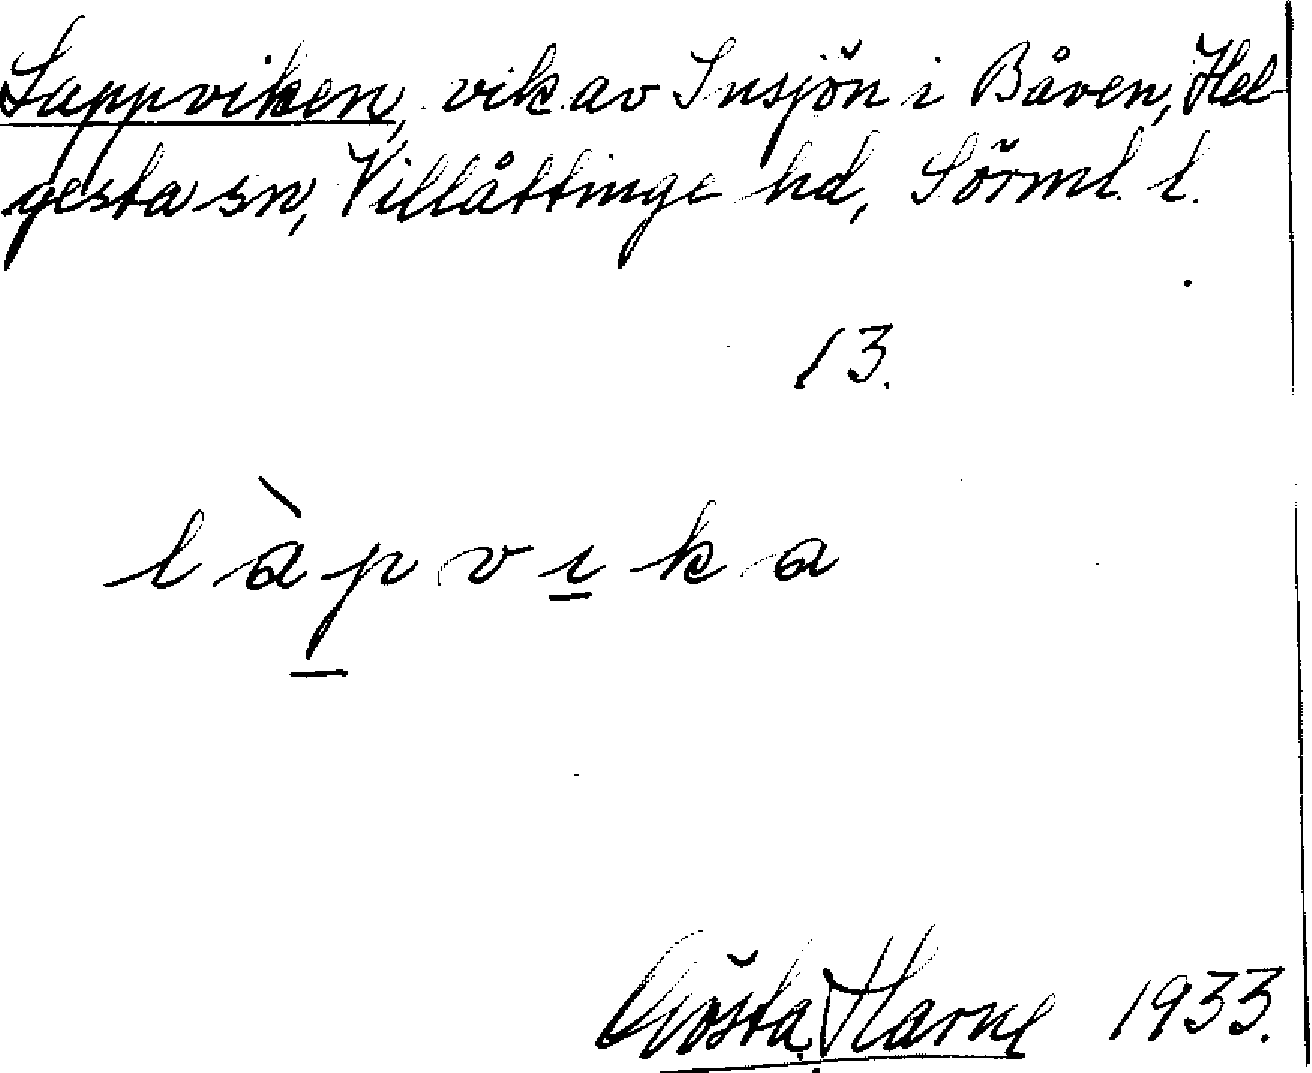 Lappviken, vik av Insjön i Båven, Hel-
gesta sn, Villåttinge hd, Sörml. l.
13.
làpvıka
Gösta Harne 1933.